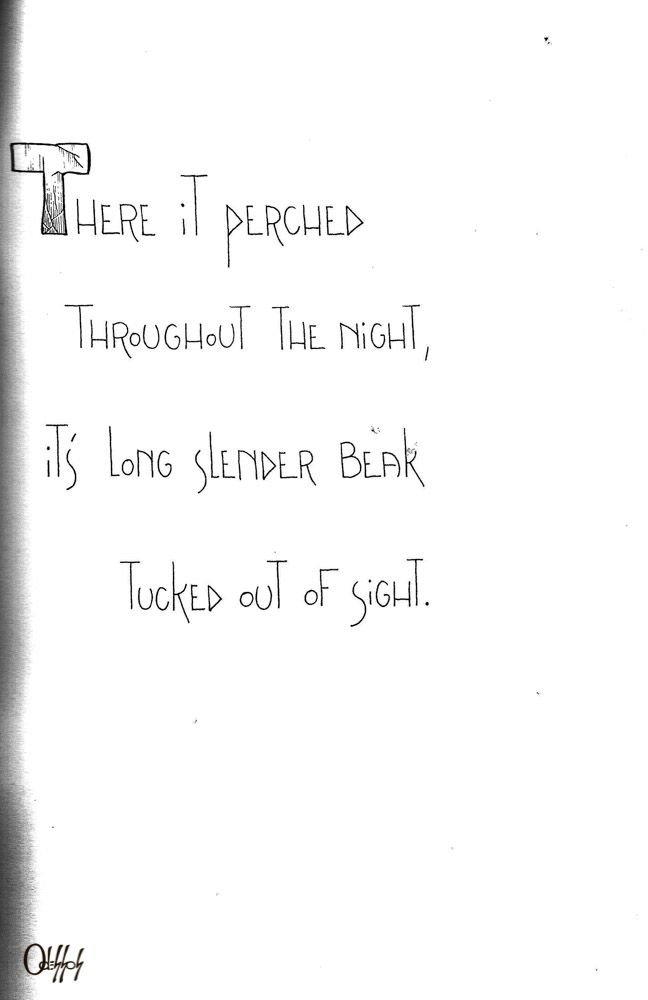 THERE iT PERCHED
THROUGHOUT THE NiGHT,
iT'S LONG SLENDER BEAK
TUCKED OUT OF SiGHT.